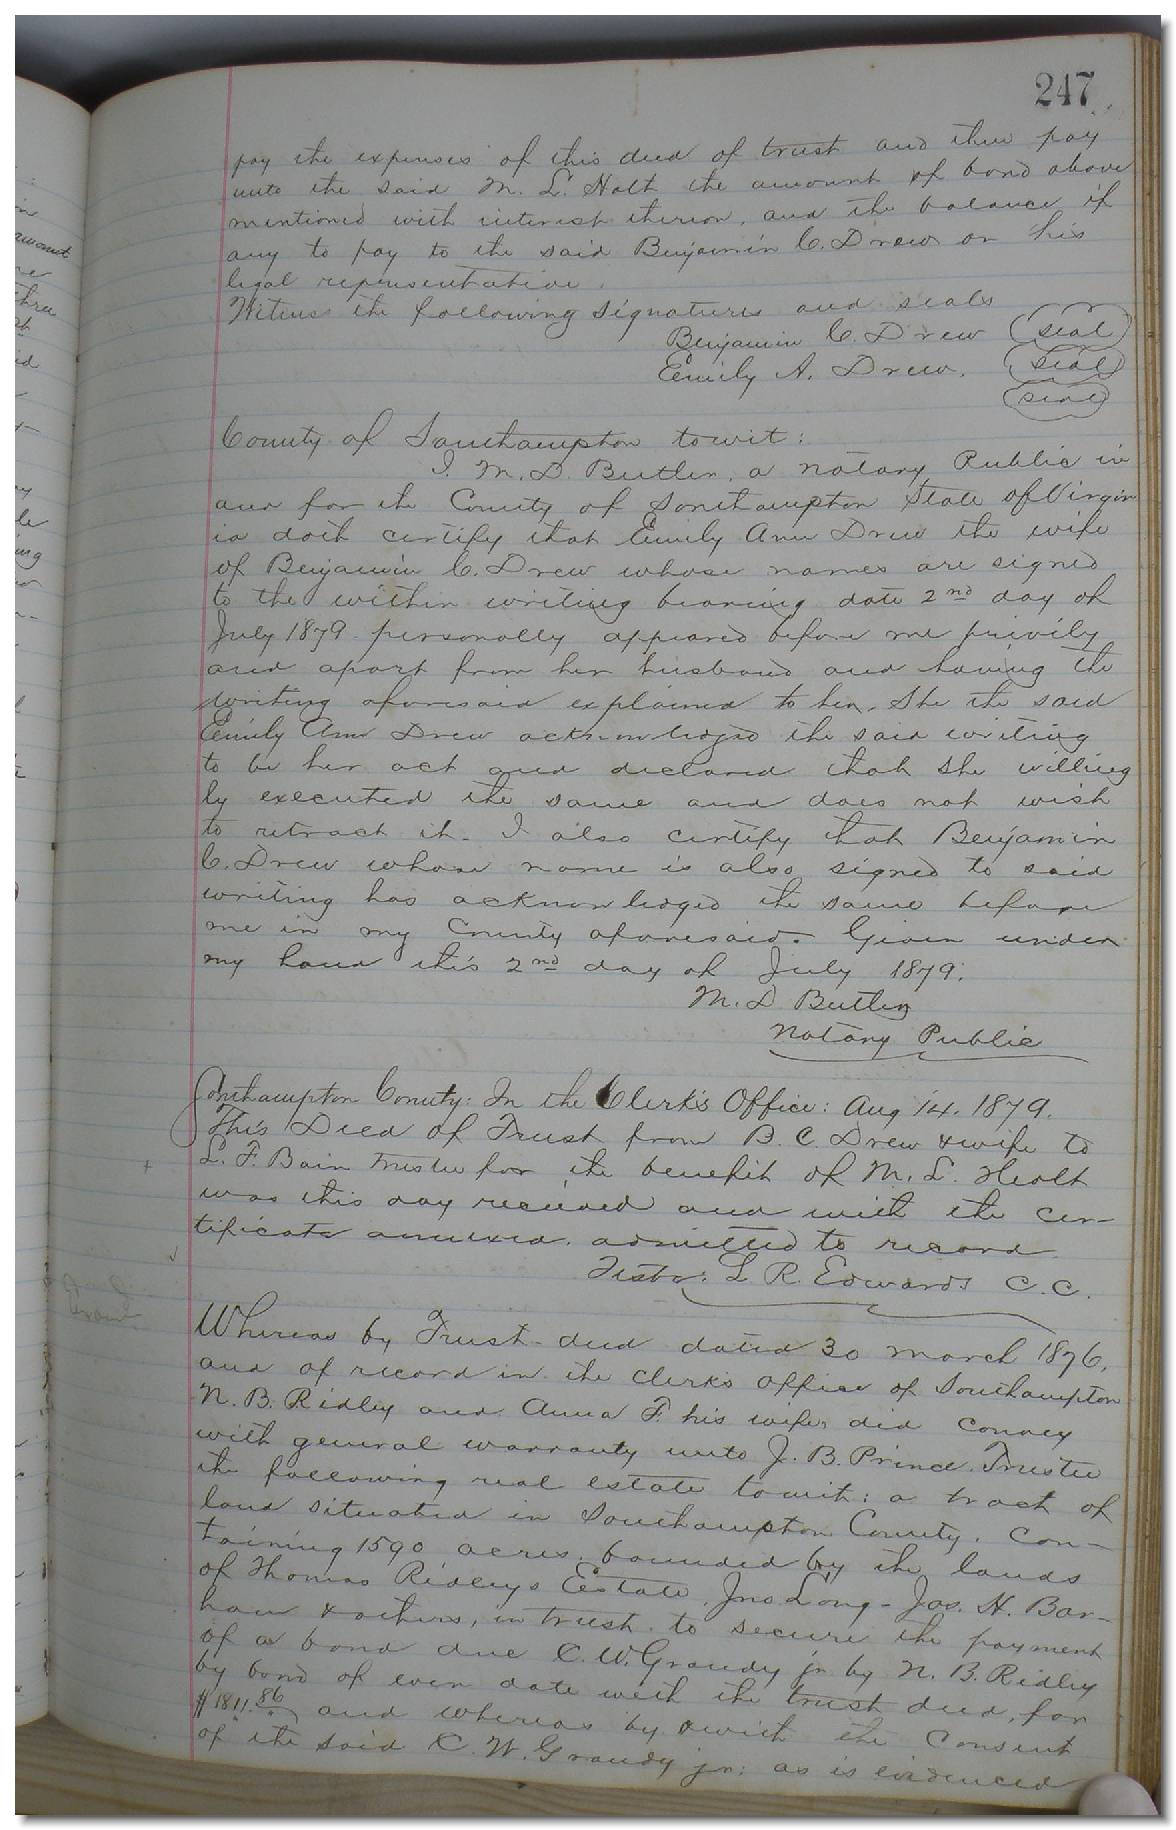 247
pay the expenses of this deed of trust and then pay
unto the said M. L. Holt the amount of bond above
mentioned with interest thereon, and the balance if
any to pay to the said Benjamin C. Drew or his
legal representative.
Witness the following signatures and seals
Benjamin C. Drew (seal)
Emily A. Drew. (seal)
(seal)
County of Southampton towit:
I. M. D. Butler, a Notary Public in
and for the County of Southampton State of Virgin
ia doth certify that Emily Ann Drew the wife
of Benjamin C. Drew whose names are signed
to the within writing bearing date 2nd day of
July 1879 personally appeared before me privily
and apart from her husband and having the
writing aforesaid explained to her, She the said
Emily Ann Drew acknowledged the said writing
to be her act and declared that she willing
ly executed the same and does not wish
to retract it. I also certify that Benjamin
C. Drew whose name is also signed to said
writing has acknowledged the same before
me in my County aforesaid. Given under
my hand this 2nd day of July 1879.
M. D Butler
Notary Public
Southampton County: In the Clerk's Office: Aug 14. 1879.
This Deed of Trust from B. C. Drew & wife to
L. F. Bain trustee for the benefit of M. L. Holt
was this day received and with the cer-
tificate annexed, admitted to record
Teste: L R. Edwards C. C.
Whereas by Trust-deed dated 30 March 1876,
and of record in the clerk's office of Southampton
N. B. Ridley and Anna F. his wife, did convey
with general warranty unto J. B. Prince Trustee
the following real estate towit: a tract of
land situated in Southampton County, con-
taining 1590 acres, bounded by the lands
of Thomas Ridley's Estate, Jno. Long - Jas. H. Bar-
ham & others, in trust to secure the payment
of a bond due C. W. Grandy jr by N. B. Ridley
by bond of even date with the trust deed, for
$1811.86 and whereas by & with the consent
of the said C. W. Grandy jr: as is evidenced